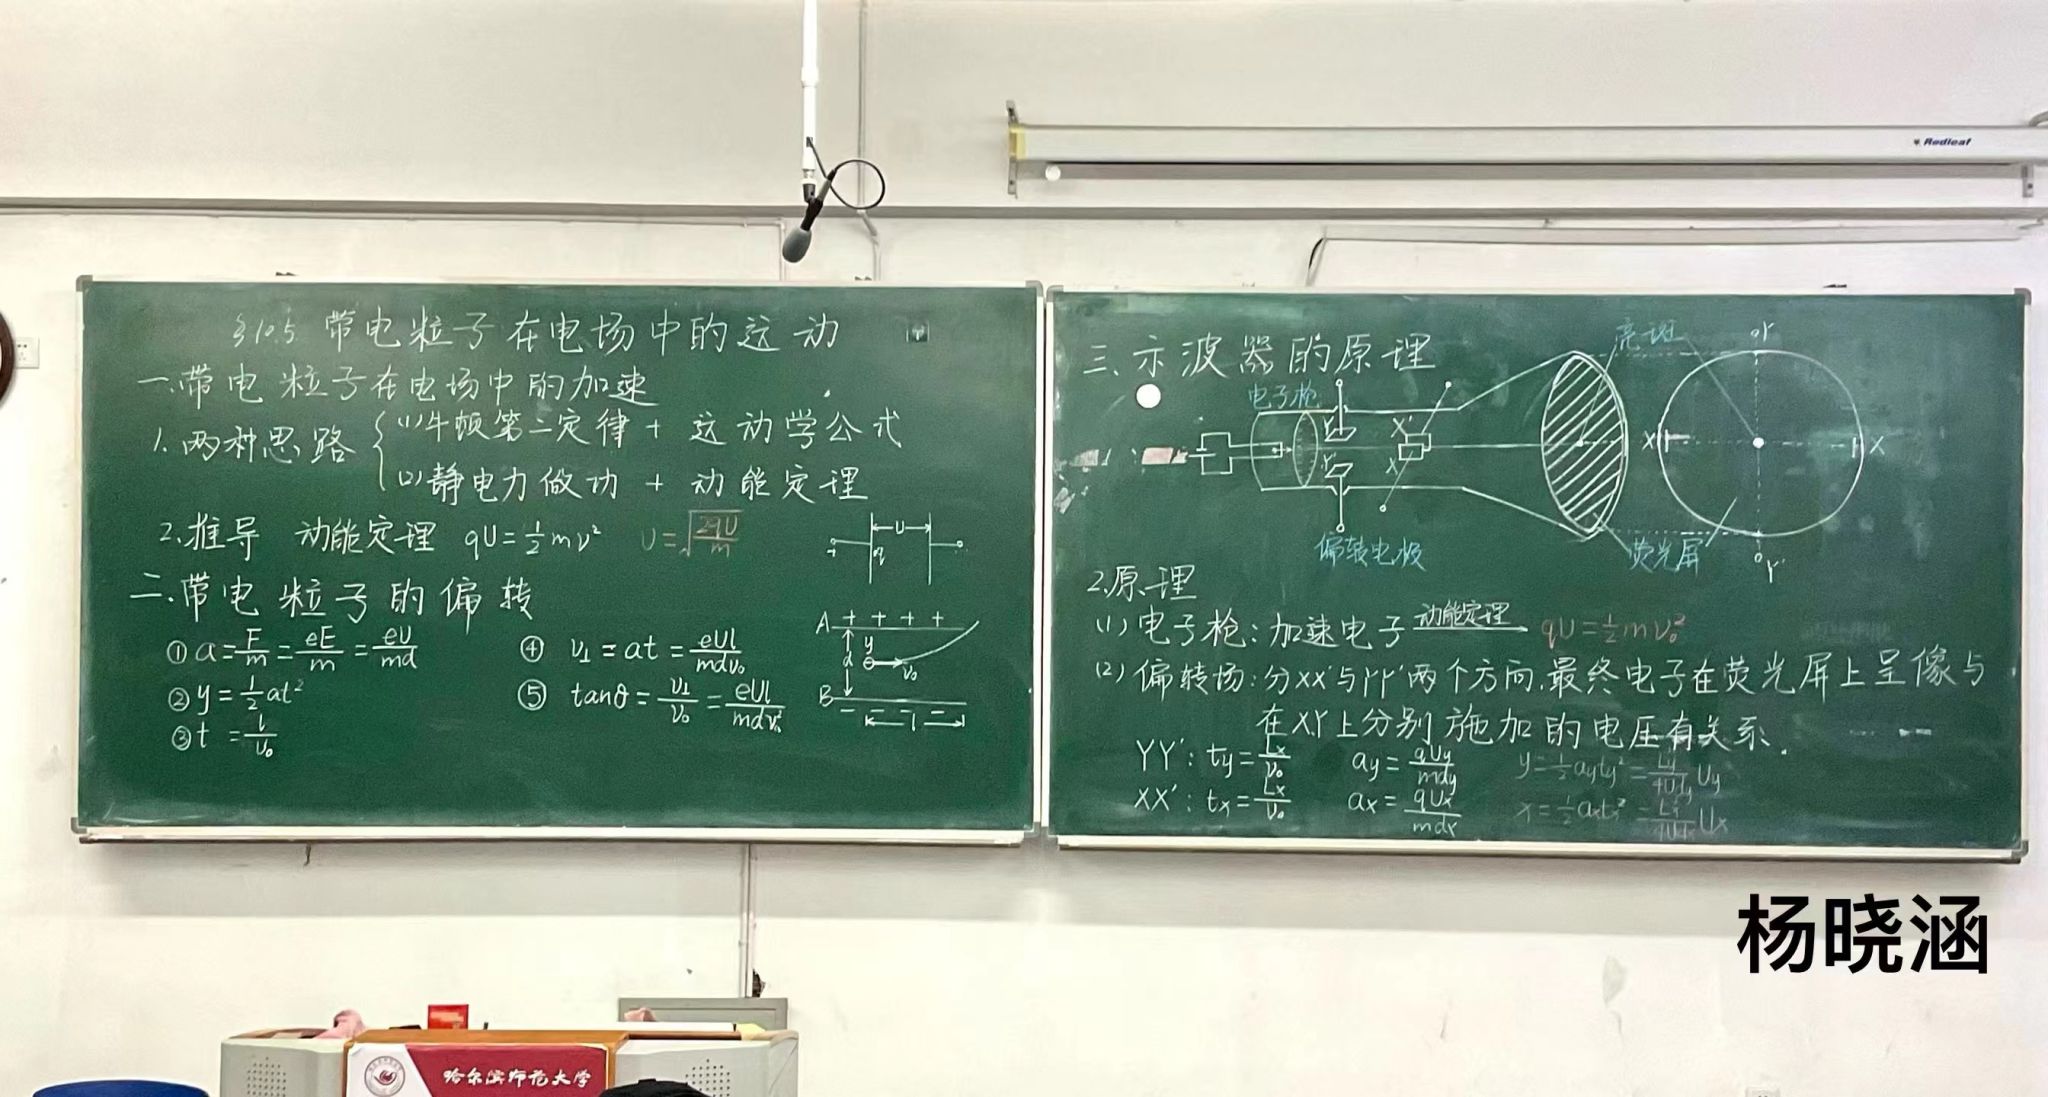 §10.5 带电粒子在电场中的运动
一.带电粒子在电场中的加速
1.两种思路
(1)牛顿第二定律 + 运动学公式
(2)静电力做功 + 动能定理
2.推导 动能定理 qU=½mv² υ=√(2qU/m)
+ q U
二.带电粒子的偏转
① a=F/m=eE/m=eU/md
② y=½at²
③ t=l/v₀
④ v⊥=at=eUl/mdv₀
⑤ tanθ=v⊥/v₀=eUl/mdv₀²
A + + + +
d y v₀
B
− − − −
l
三.示波器的原理
电子枪
Y
Y'
X'
X
偏转电极
亮斑
荧光屏
Y
X' X
Y'
2.原理
(1)电子枪:加速电子 动能定理 qU=½mv₀²
(2)偏转场:分XX'与YY'两个方向,最终电子在荧光屏上呈像与
在XY上分别施加的电压有关系.
YY': ty=Lx/v₀ ay=qUy/mdy y=½ayty²=Ly²/4Udy Uy
XX': tx=Lx/v₀ ax=qUx/mdx x=½axtx²
Ux
Redleaf
杨晓涵
哈尔滨师范大学